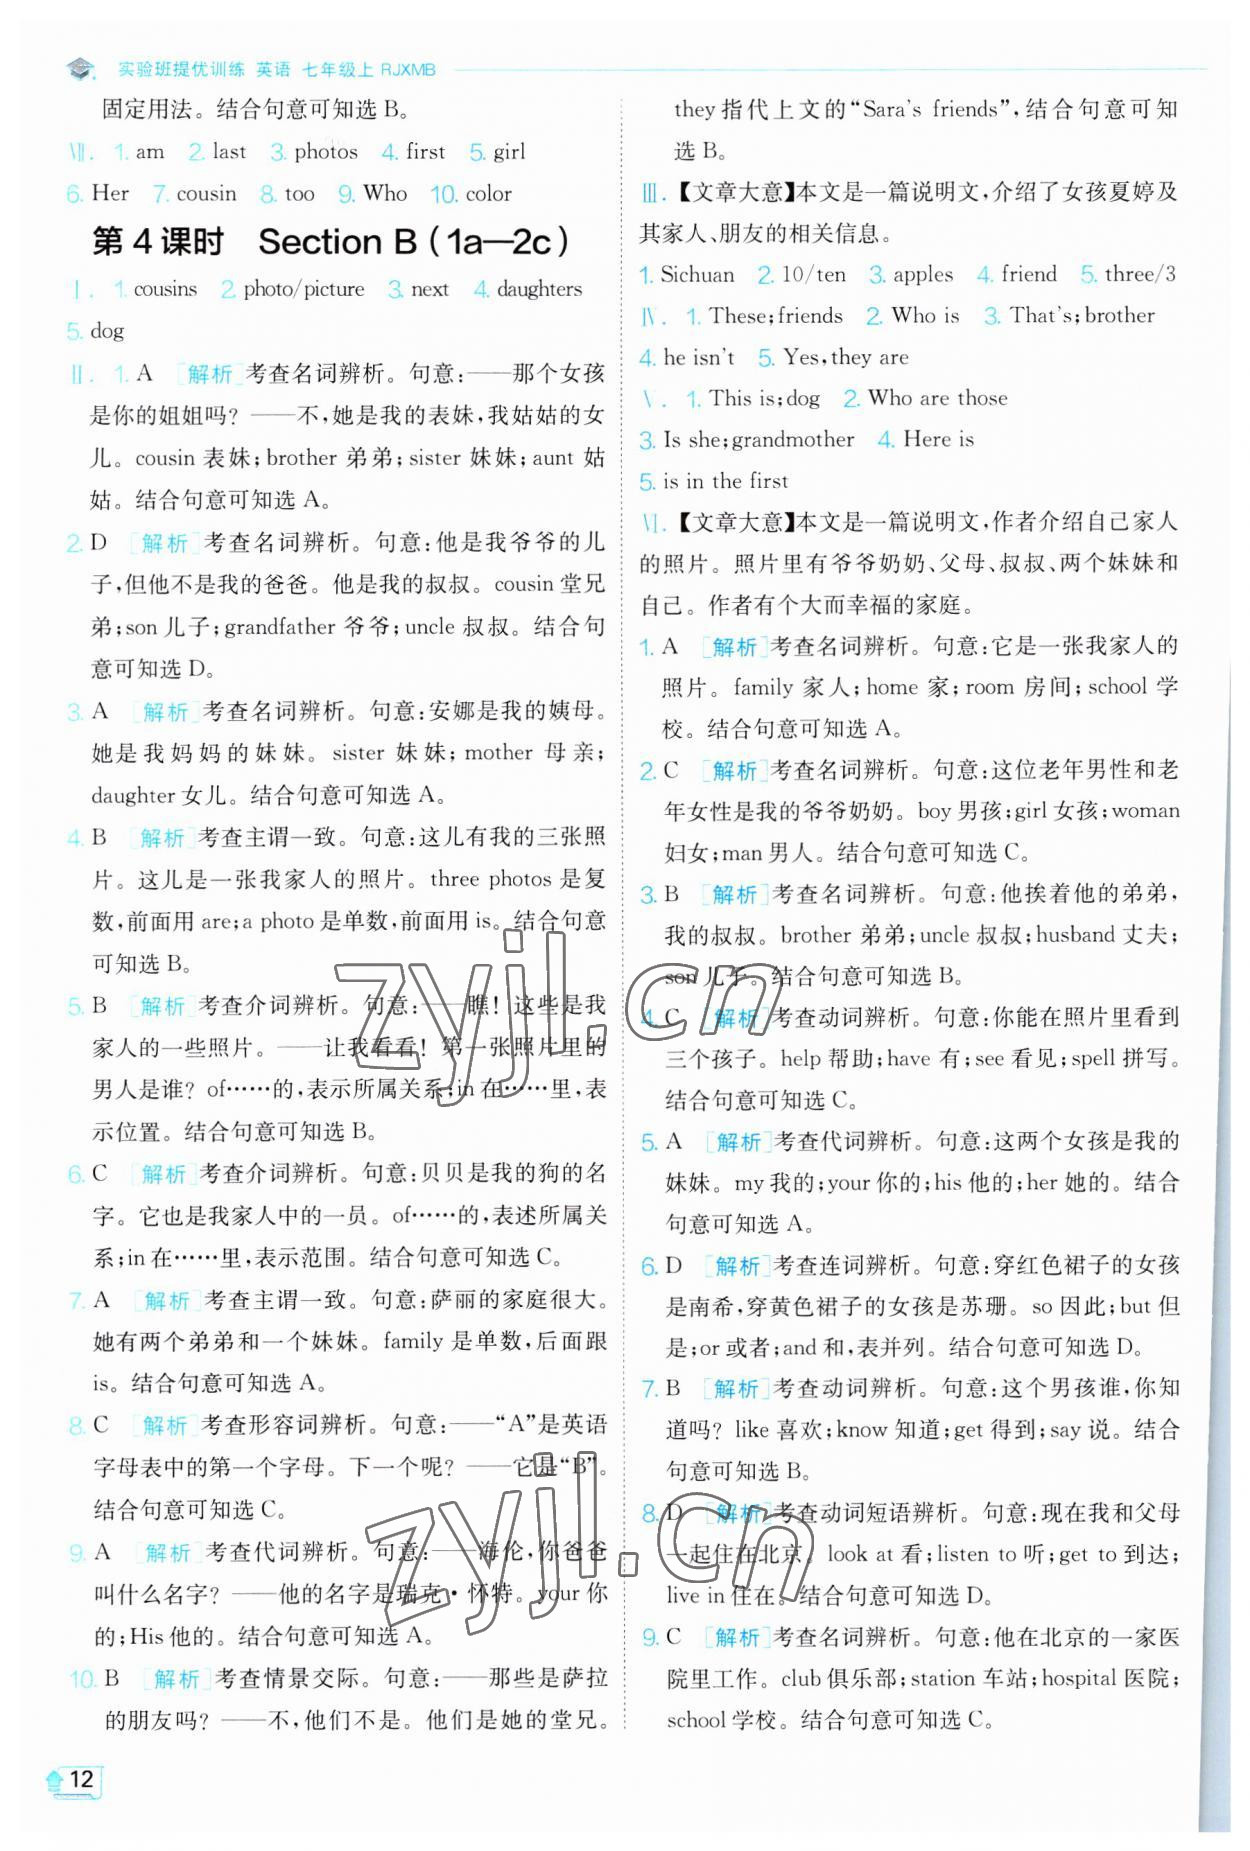 实验班提优训练 英语 七年级上 RJXMB
固定用法。结合句意可知选 B。
Ⅶ. 1. am 2. last 3. photos 4. first 5. girl
6. Her 7. cousin 8. too 9. Who 10. color
第 4 课时 Section B（1a—2c）
Ⅰ. 1. cousins 2. photo/picture 3. next 4. daughters
5. dog
Ⅱ. 1. A ［解析］考查名词辨析。句意:——那个女孩
是你的姐姐吗? ——不,她是我的表妹,我姑姑的女
儿。cousin 表妹;brother 弟弟;sister 妹妹;aunt 姑
姑。结合句意可知选 A。
2. D ［解析］考查名词辨析。句意:他是我爷爷的儿
子,但他不是我的爸爸。他是我的叔叔。cousin 堂兄
弟;son 儿子;grandfather 爷爷;uncle 叔叔。结合句
意可知选 D。
3. A ［解析］考查名词辨析。句意:安娜是我的姨母。
她是我妈妈的妹妹。sister 妹妹;mother 母亲;
daughter 女儿。结合句意可知选 A。
4. B ［解析］考查主谓一致。句意:这儿有我的三张照
片。这儿是一张我家人的照片。three photos 是复
数,前面用 are;a photo 是单数,前面用 is。结合句意
可知选 B。
5. B ［解析］考查介词辨析。句意:——瞧! 这些是我
家人的一些照片。——让我看看! 第一张照片里的
男人是谁? of……的,表示所属关系;in 在……里,表
示位置。结合句意可知选 B。
6. C ［解析］考查介词辨析。句意:贝贝是我的狗的名
字。它也是我家人中的一员。of……的,表述所属关
系;in 在……里,表示范围。结合句意可知选 C。
7. A ［解析］考查主谓一致。句意:萨丽的家庭很大。
她有两个弟弟和一个妹妹。family 是单数,后面跟
is。结合句意可知选 A。
8. C ［解析］考查形容词辨析。句意:——“A”是英语
字母表中的第一个字母。下一个呢? ——它是“B”。
结合句意可知选 C。
9. A ［解析］考查代词辨析。句意:——海伦,你爸爸
叫什么名字? ——他的名字是瑞克·怀特。your 你
的;His 他的。结合句意可知选 A。
10. B ［解析］考查情景交际。句意:——那些是萨拉
的朋友吗? ——不,他们不是。他们是她的堂兄。
they 指代上文的“Sara's friends”,结合句意可知
选 B。
Ⅲ.【文章大意】本文是一篇说明文,介绍了女孩夏婷及
其家人、朋友的相关信息。
1. Sichuan 2. 10/ten 3. apples 4. friend 5. three/3
Ⅳ. 1. These;friends 2. Who is 3. That's;brother
4. he isn't 5. Yes,they are
Ⅴ. 1. This is;dog 2. Who are those
3. Is she;grandmother 4. Here is
5. is in the first
Ⅵ.【文章大意】本文是一篇说明文,作者介绍自己家人
的照片。照片里有爷爷奶奶、父母、叔叔、两个妹妹和
自己。作者有个大而幸福的家庭。
1. A ［解析］考查名词辨析。句意:它是一张我家人的
照片。family 家人;home 家;room 房间;school 学
校。结合句意可知选 A。
2. C ［解析］考查名词辨析。句意:这位老年男性和老
年女性是我的爷爷奶奶。boy 男孩;girl 女孩;woman
妇女;man 男人。结合句意可知选 C。
3. B ［解析］考查名词辨析。句意:他挨着他的弟弟,
我的叔叔。brother 弟弟;uncle 叔叔;husband 丈夫;
son 儿子。结合句意可知选 B。
4. C ［解析］考查动词辨析。句意:你能在照片里看到
三个孩子。help 帮助;have 有;see 看见;spell 拼写。
结合句意可知选 C。
5. A ［解析］考查代词辨析。句意:这两个女孩是我的
妹妹。my 我的;your 你的;his 他的;her 她的。结合
句意可知选 A。
6. D ［解析］考查连词辨析。句意:穿红色裙子的女孩
是南希,穿黄色裙子的女孩是苏珊。so 因此;but 但
是;or 或者;and 和,表并列。结合句意可知选 D。
7. B ［解析］考查动词辨析。句意:这个男孩谁,你知
道吗? like 喜欢;know 知道;get 得到;say 说。结合
句意可知选 B。
8. D ［解析］考查动词短语辨析。句意:现在我和父母
一起住在北京。look at 看;listen to 听;get to 到达;
live in 住在。结合句意可知选 D。
9. C ［解析］考查名词辨析。句意:他在北京的一家医
院里工作。club 俱乐部;station 车站;hospital 医院;
school 学校。结合句意可知选 C。
12
zyjl.cn
zyjl.cn